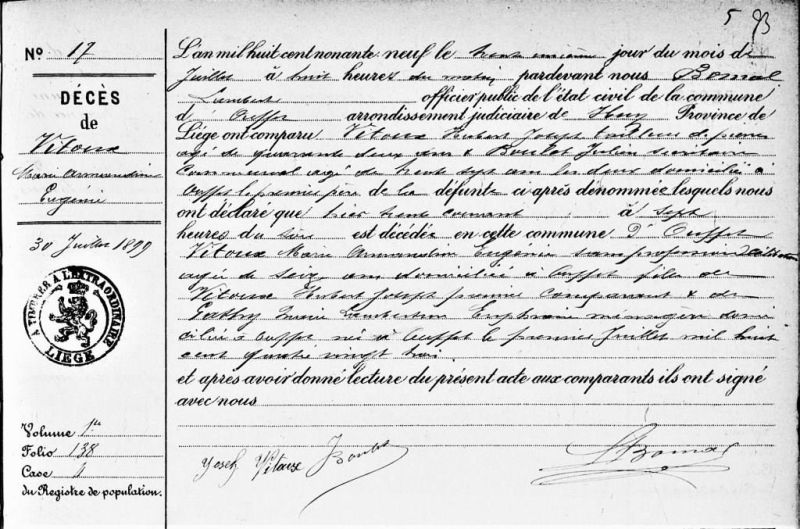 5 93
N° 17
DÉCÈS
de
Vitoux
Marie Armandine
Eugénie
30 Juillet 1899
A TIMBRER A L'EXTRAORDINAIRE
LIÉGE
Volume 1er
Folio 138
Case 4
du Registre de population.
L'an mil huit cent nonante neuf le trent unième jour du mois de
Juillet à huit heures du matin pardevant nous Bomal
Lambert officier public de l'état civil de la commune
d' Ouffet arrondissement judiciaire de Huy Province de
Liége ont comparu Vitoux Hubert Joseph de pierres
agé de quarante deux ans & Boulet Julien secrétaire
communal agé de trent sept ans les deux domiciliés à
Ouffet le premier père de la défunte ci après dénommée lesquels nous
ont déclaré que hier trent courant à sept
heures du soir est décédée en cette commune D' Ouffet
Vitoux Marie Armandine Eugénie sans profession célibataire
agée de seize ans domiciliée à Ouffet fille de
Vitoux Hubert Joseph premier comparant & de
Marie Lambertine Euphrasie ménagère domi
ciliée à Ouffet née à Ouffet le premier Juillet mil huit
cent quatre vingt trois
et après avoir donné lecture du présent acte aux comparants ils ont signé
avec nous
Joseph Vitoux JBoulet LBomal